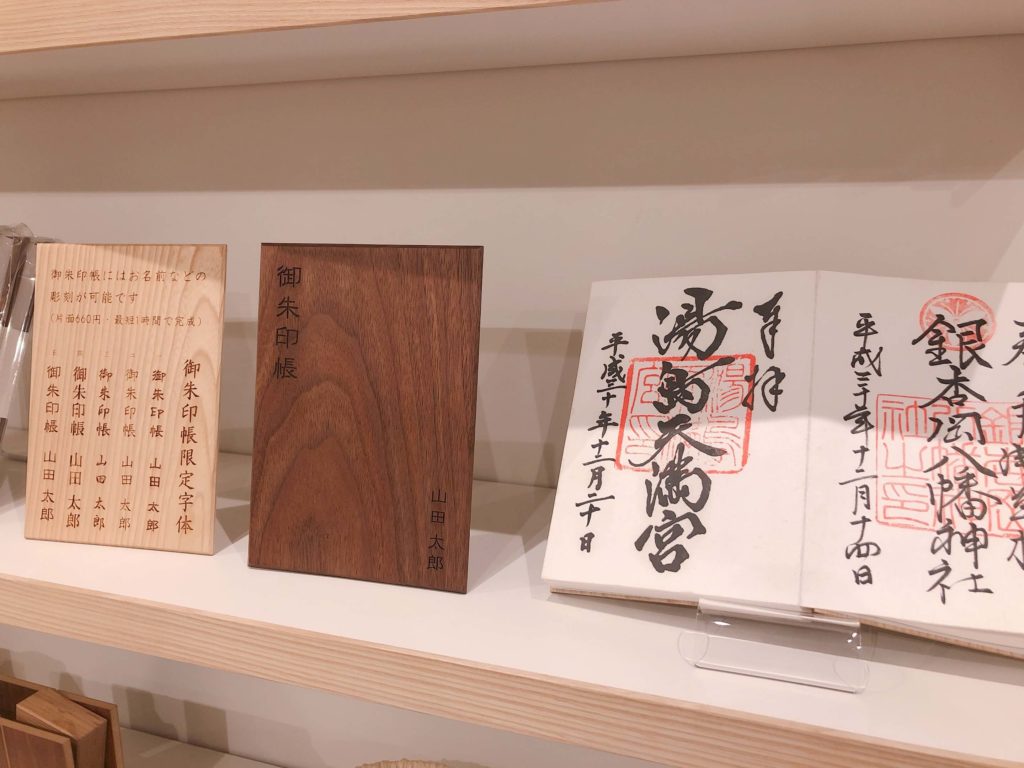 御朱印帳にはお名前などの
彫刻が可能です
(片面660円・最短1時間で完成)
御朱印帳限定字体
一 御朱印帳 山田 太郎
二 御朱印帳 山田 太郎
三 御朱印帳 山田 太郎
四 御朱印帳 山田 太郎
五 御朱印帳 山田 太郎
御朱印帳
山田 太郎
奉拝
湯島天満宮
平成三十年十二月二十日
銀杏岡八幡神社
平成三十年十二月十四日